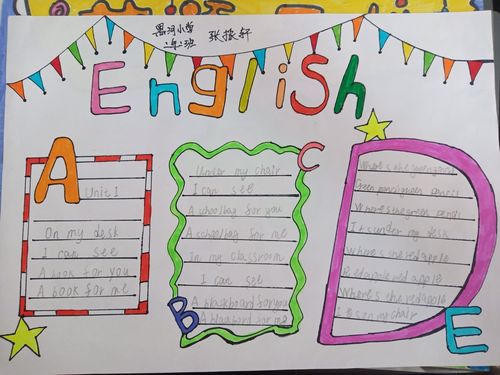 黑河小学
张掖轩
English
A
Unit 1
On my desk
I can see
A book for you
A book for me
B
C
Under my chair
I can see
A schoolbag for you
A schoolbag for me
In my classroom
I can see
A blackboard for you
A blaabord for me
D
Where's the green pencil
Green pencil green pencil
Where's the green pencil
It's under my desk
Where's the red apple
Red apple red apple
Where's the red apple
It is on my chair
E